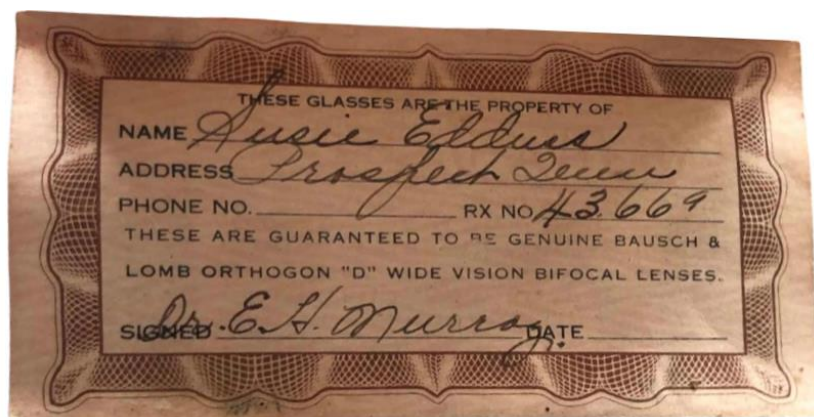 THESE GLASSES ARE THE PROPERTY OF
NAME Susie Edduss
ADDRESS Prospect Tenn
PHONE NO. RX NO 43669
THESE ARE GUARANTEED TO BE GENUINE BAUSCH &
LOMB ORTHOGON "D" WIDE VISION BIFOCAL LENSES.
SIGNED Dr. E. H. Murray. DATE